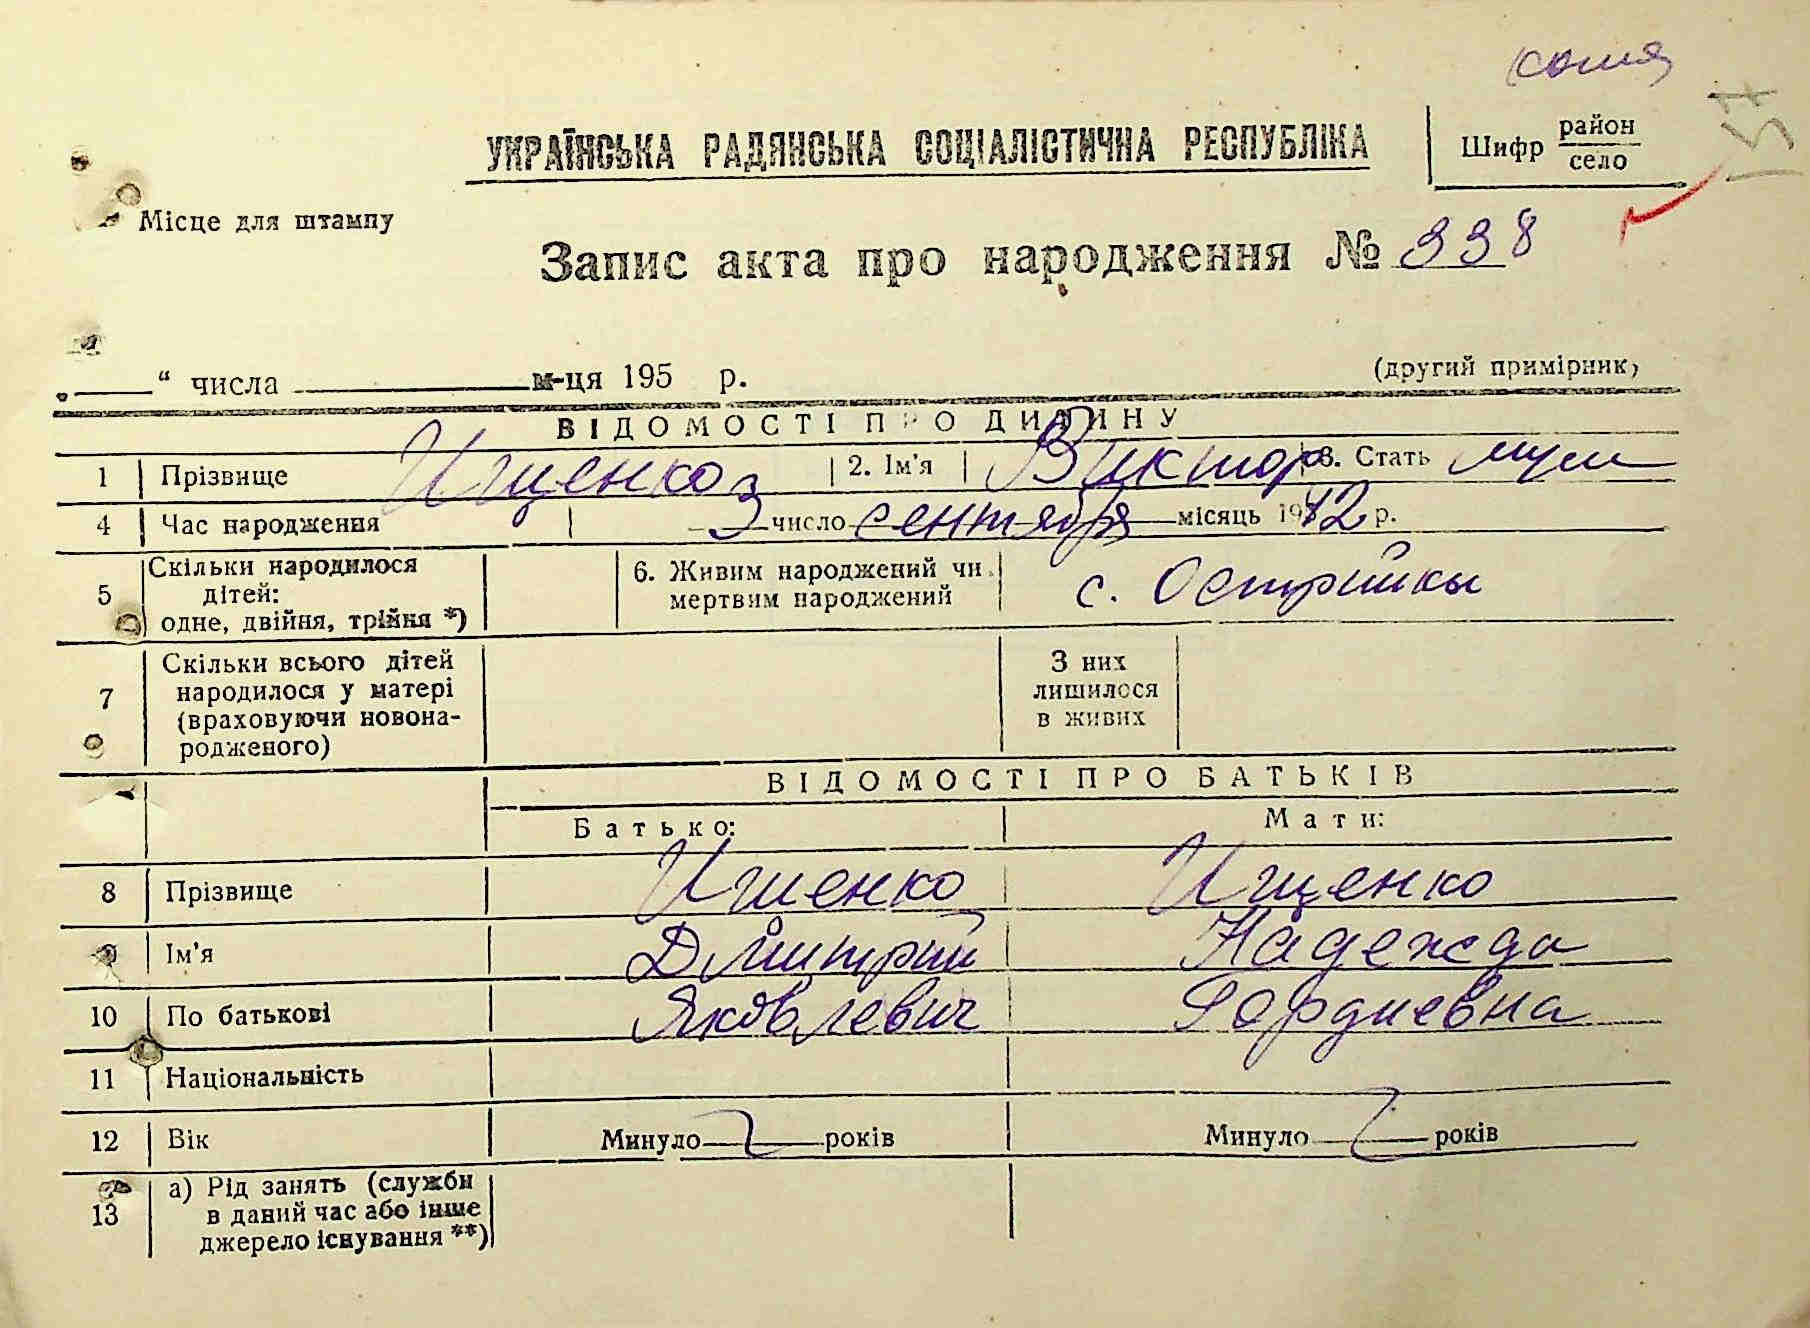 копия
157
УКРАЇНСЬКА РАДЯНСЬКА СОЦІАЛІСТИЧНА РЕСПУБЛІКА
Шифр район
село
Місце для штампу
Запис акта про народження № 338
„ “ числа м-ця 195 р.
(другий примірник)
ВІДОМОСТІ ПРО ДИТИНУ
1 Прізвище Ищенко 2. Ім'я Виктор 3. Стать муж
4 Час народження 3 число сентября місяць 1942 р.
5 Скільки народилося дітей: одне, двійня, трійня *) 6. Живим народжений чи мертвим народжений с. Острійки
7 Скільки всього дітей народилося у матері (враховуючи новонародженого) З них лишилося в живих
ВІДОМОСТІ ПРО БАТЬКІВ
Батько: Мати:
8 Прізвище Ищенко Ищенко
9 Ім'я Дмитрий Надежда
10 По батькові Яковлевич Гордиевна
11 Національність
12 Вік Минуло років Минуло років
13 а) Рід занять (служби в даний час або інше джерело існування **)